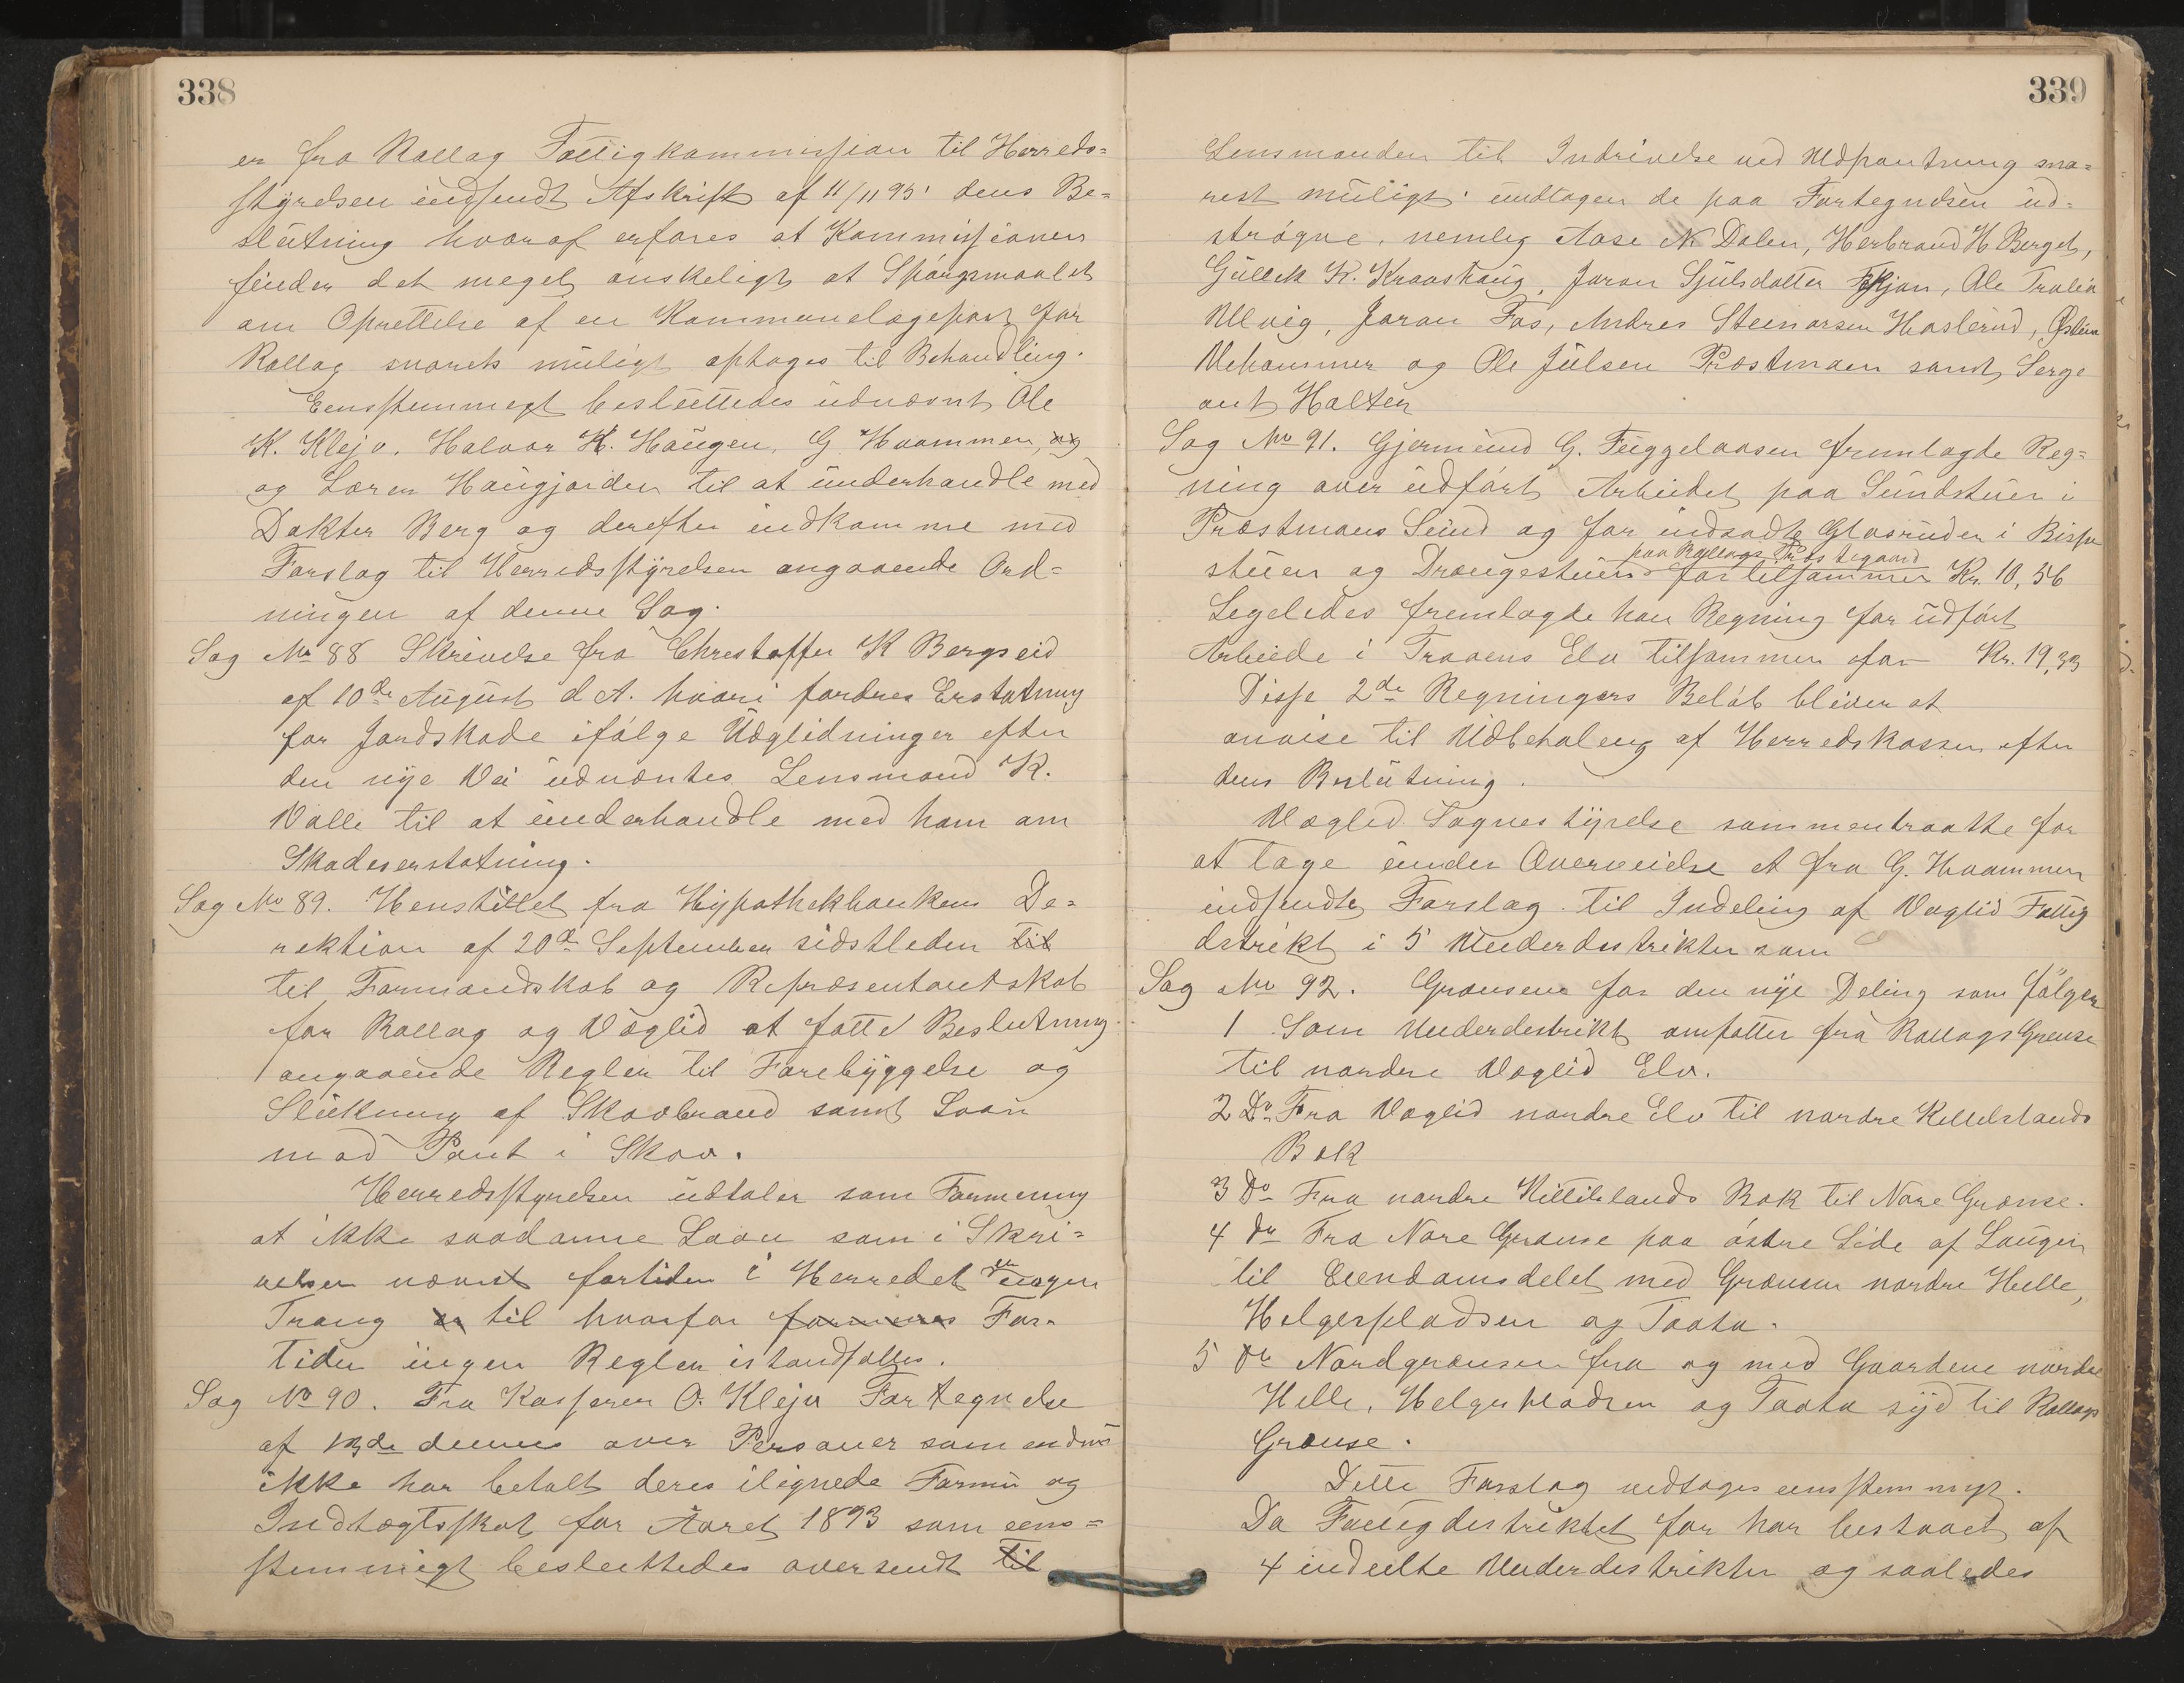 338
er fra Rollag Fattigkommission til Herreds=
styrelsen indsendt Afskrift af 11/11 95 dens Be=
slutning hvoraf erfares at Kommissionen
finder det meget ønskeligt at Spørgsmaalet
om Oprettelse af en Kommunelægepost for
Rollag snarets muligt optages til Behandling.
Eensstemmegt besluttedes udnævnt Ole
K. Klejv. Halvor H. Haugen, G. Hvammen, og
og Loren Haugjorden til at underhandle med
Dokter Berg og derefter indkomme med
Forslag til Herredsstyrelsen angaaende Ord=
ningen af denne Sag.
Sag No 88 Skrivelse fra Chrestoffer K Bergseid
af 10de August d A. hvori fordres Erstatning
for Jordskade ifølge Udglidninger efter
den nye Vei udnæntes Lensmand K.
Valle til at underhandle med ham om
Skadeserstatning.
Sag No 89. Henstillet fra Hypothekbankens De=
rektion af 20de September sidstleden til
til Formandskab og Repræsentantskab
for Rollag og Væglid at fatte Beslutning
angaaende Regler til Forebyggelse og
Slukning af Skovbrand samt Laan
mod Pant i Skov.
Herredsstyrelsen udtaler som Formening
at ikke saadanne Laan som i Skri=
velsen nævnt fortiden i Herredet er ingen
Trang er til hvorfor formenes For=
tiden ingen Regler istandsættes.
Sag No 90. Fra Kasserer O. Klejv Fortegnelse
af 13de dennes over Personer som endnu
ikke har betalt deres ilignede Formu og
Indtægtsskat for Aaret 1893 som eens=
stemmigt besluttedes oversendt til
339
Lensmanden til Indrivelse ved Udpantning sna=
rest muligt undtagen de paa Fortegnelsen ud=
strøgne, nemlig Aase N Dalen, Herbrand H Berget,
Gullek K. Kraashaug, Joron Sjulsdatter Fekjan, Ole Tralia
Ulvig, Joran Fos, Andres Steenarsen Haslerud, Østein
Vehammer og Ole Julsen Præstmoen samt Serge
ant Halten
Sag No 91. Gjermund G. Fuggelaasen fremlagde Reg=
ning over udført Arbeidet paa Sundstuen i
Præstmoens Sund og for indsadte Glasruder i Bispe
paa Rollags Præstegaard
stuen og Drængestuen for tilsammen Kr. 10,56
Legeledes fremlagde han Regning for udført
Arbeide i Traaens Elv tilsammen for Kr. 19,33
Disse 2de Regningers Beløb bliver at
anvise til Udbetaling af Herredskassen efter
dens Beslutning.
Væglid Sognestyrelse sammentraatte for
at tage under Overveielse et fra G. Hvammen
indsendte Forslag til Indeling af Væglid Fattig
dstrikt i 5 Underdestrikter som
Sag No 92. Grænsene for den nye Deling som følger
1 Som Underdestrikt omfatter fra Rollags Grense
til nordre Væglid Elv.
2 Do Fra Væglid nordre Elv til nordre Kittelslands
Bæk
3 Do Fra nordre Kittilslands Bæk til Nore Grænse.
4 do Fra Nore Grænse paa østre Side af Laugen
til Eendomsdelet med Grænsen nordre Helle,
Helgerpladsen og Taata.
5 do Nordgrænsen fra og med Gaardene nordre
Helle, Helgerpladsen og Taata syd til Rollags
Grænse.
Dette Forslag vedtages eensstemmigt.
Da Fattigdestriktet før har bestaaet af
4 indeelte Underdestrikter og saaledes